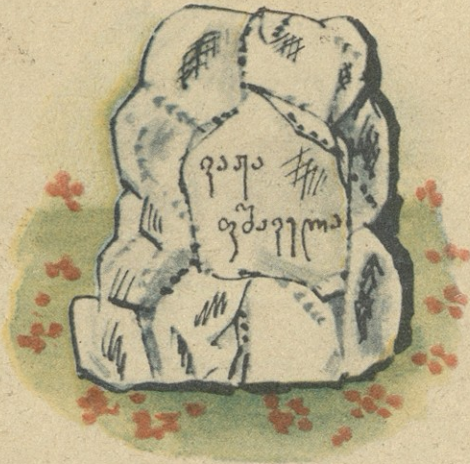 ვაჟა
ფშაველა